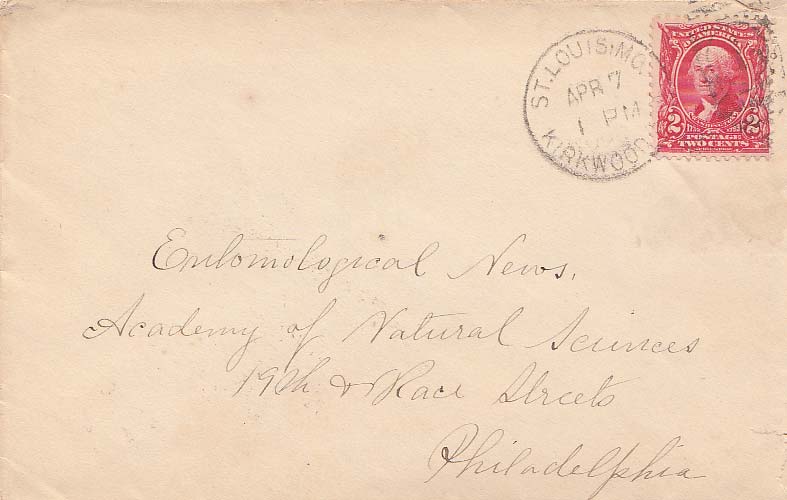 ST. LOUIS, MO.
APR 7
1 PM
KIRKWOOD
UNITED STATES
OF AMERICA
WASHINGTON
2 2
POSTAGE
TWO CENTS
Entomological News,
Academy of Natural Sciences
19th & Race Streets
Philadelphia